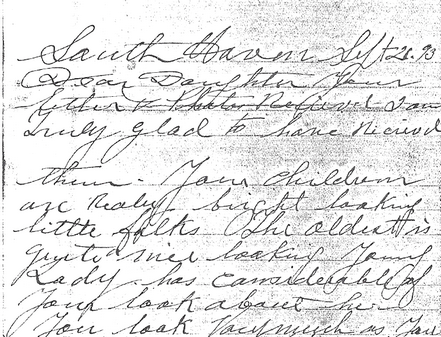 South Haven Sept 21. 93
Dear Daughter Your
letter & Photos Recieved I am
truly glad to have Recieved
them - Your Children
are Really bright looking
little folks The oldest is
quite a nice looking Young
Lady - has considerable of
Your look about her
You look very much as You